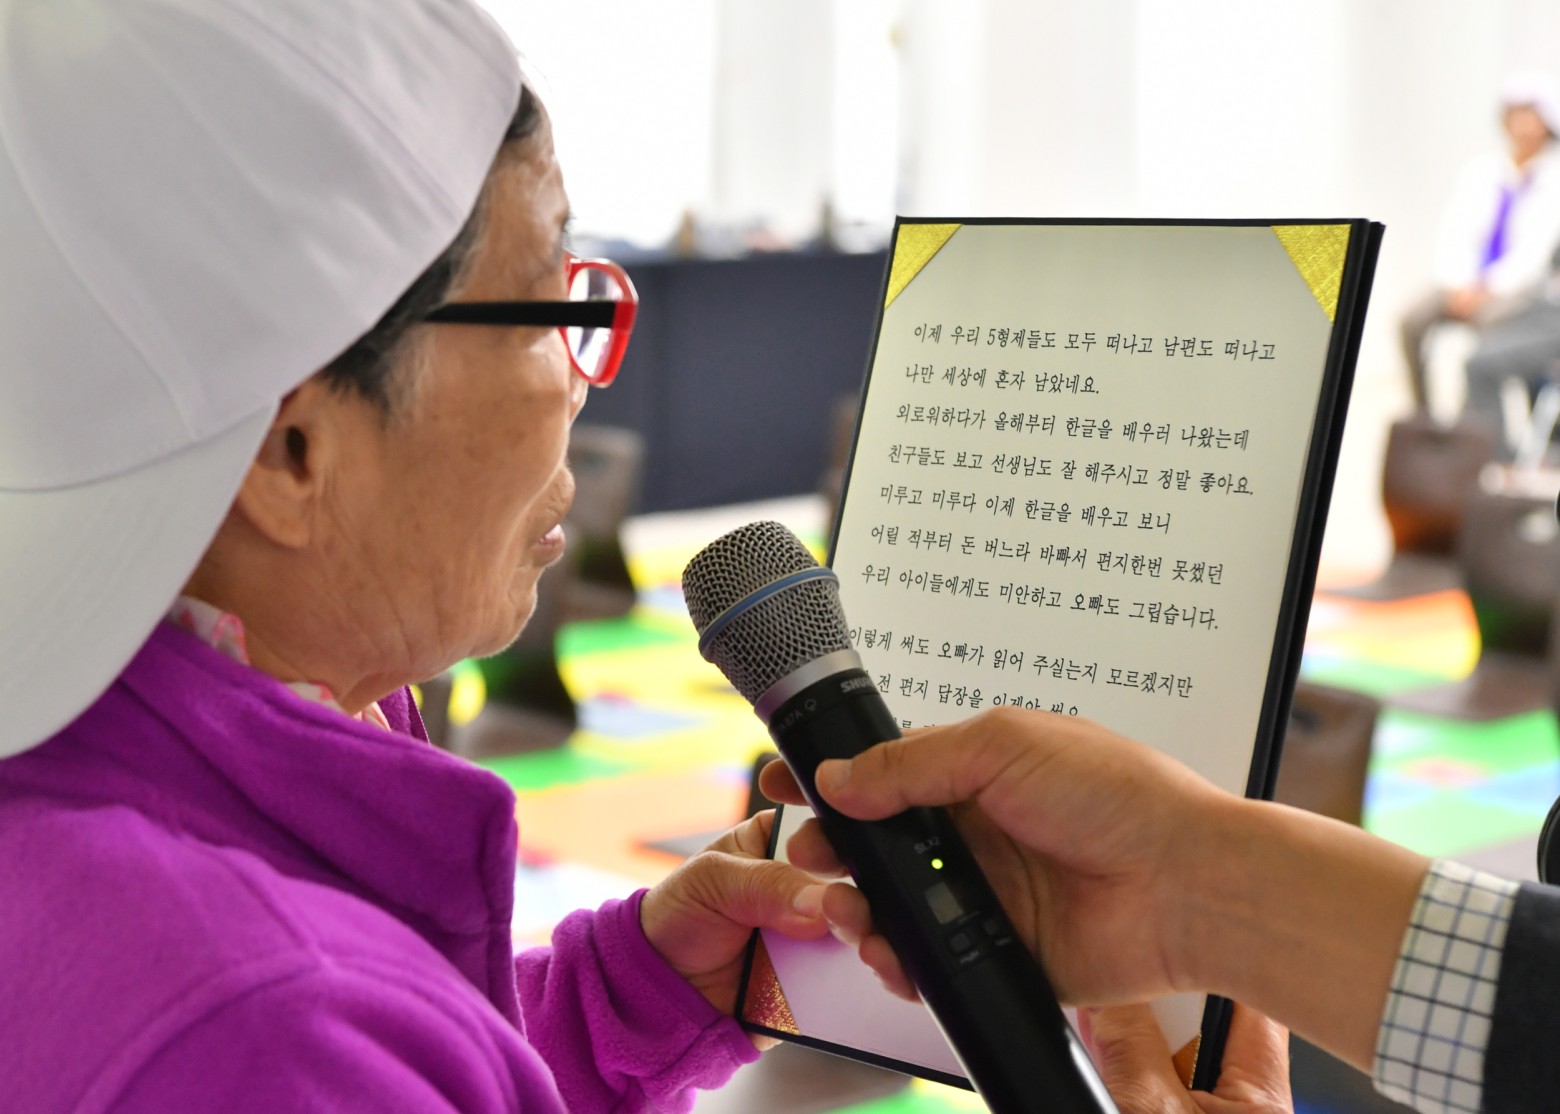 이제 우리 5형제들도 모두 떠나고 남편도 떠나고
나만 세상에 혼자 남았네요.
외로워하다가 올해부터 한글을 배우러 나왔는데
친구들도 보고 선생님도 잘 해주시고 정말 좋아요.
미루고 미루다 이제 한글을 배우고 보니
어릴 적부터 돈 버느라 바빠서 편지한번 못썼던
우리 아이들에게도 미안하고 오빠도 그립습니다.
이렇게 써도 오빠가 읽어 주실는지 모르겠지만
전 편지 답장을 이제야 써요
SLX2